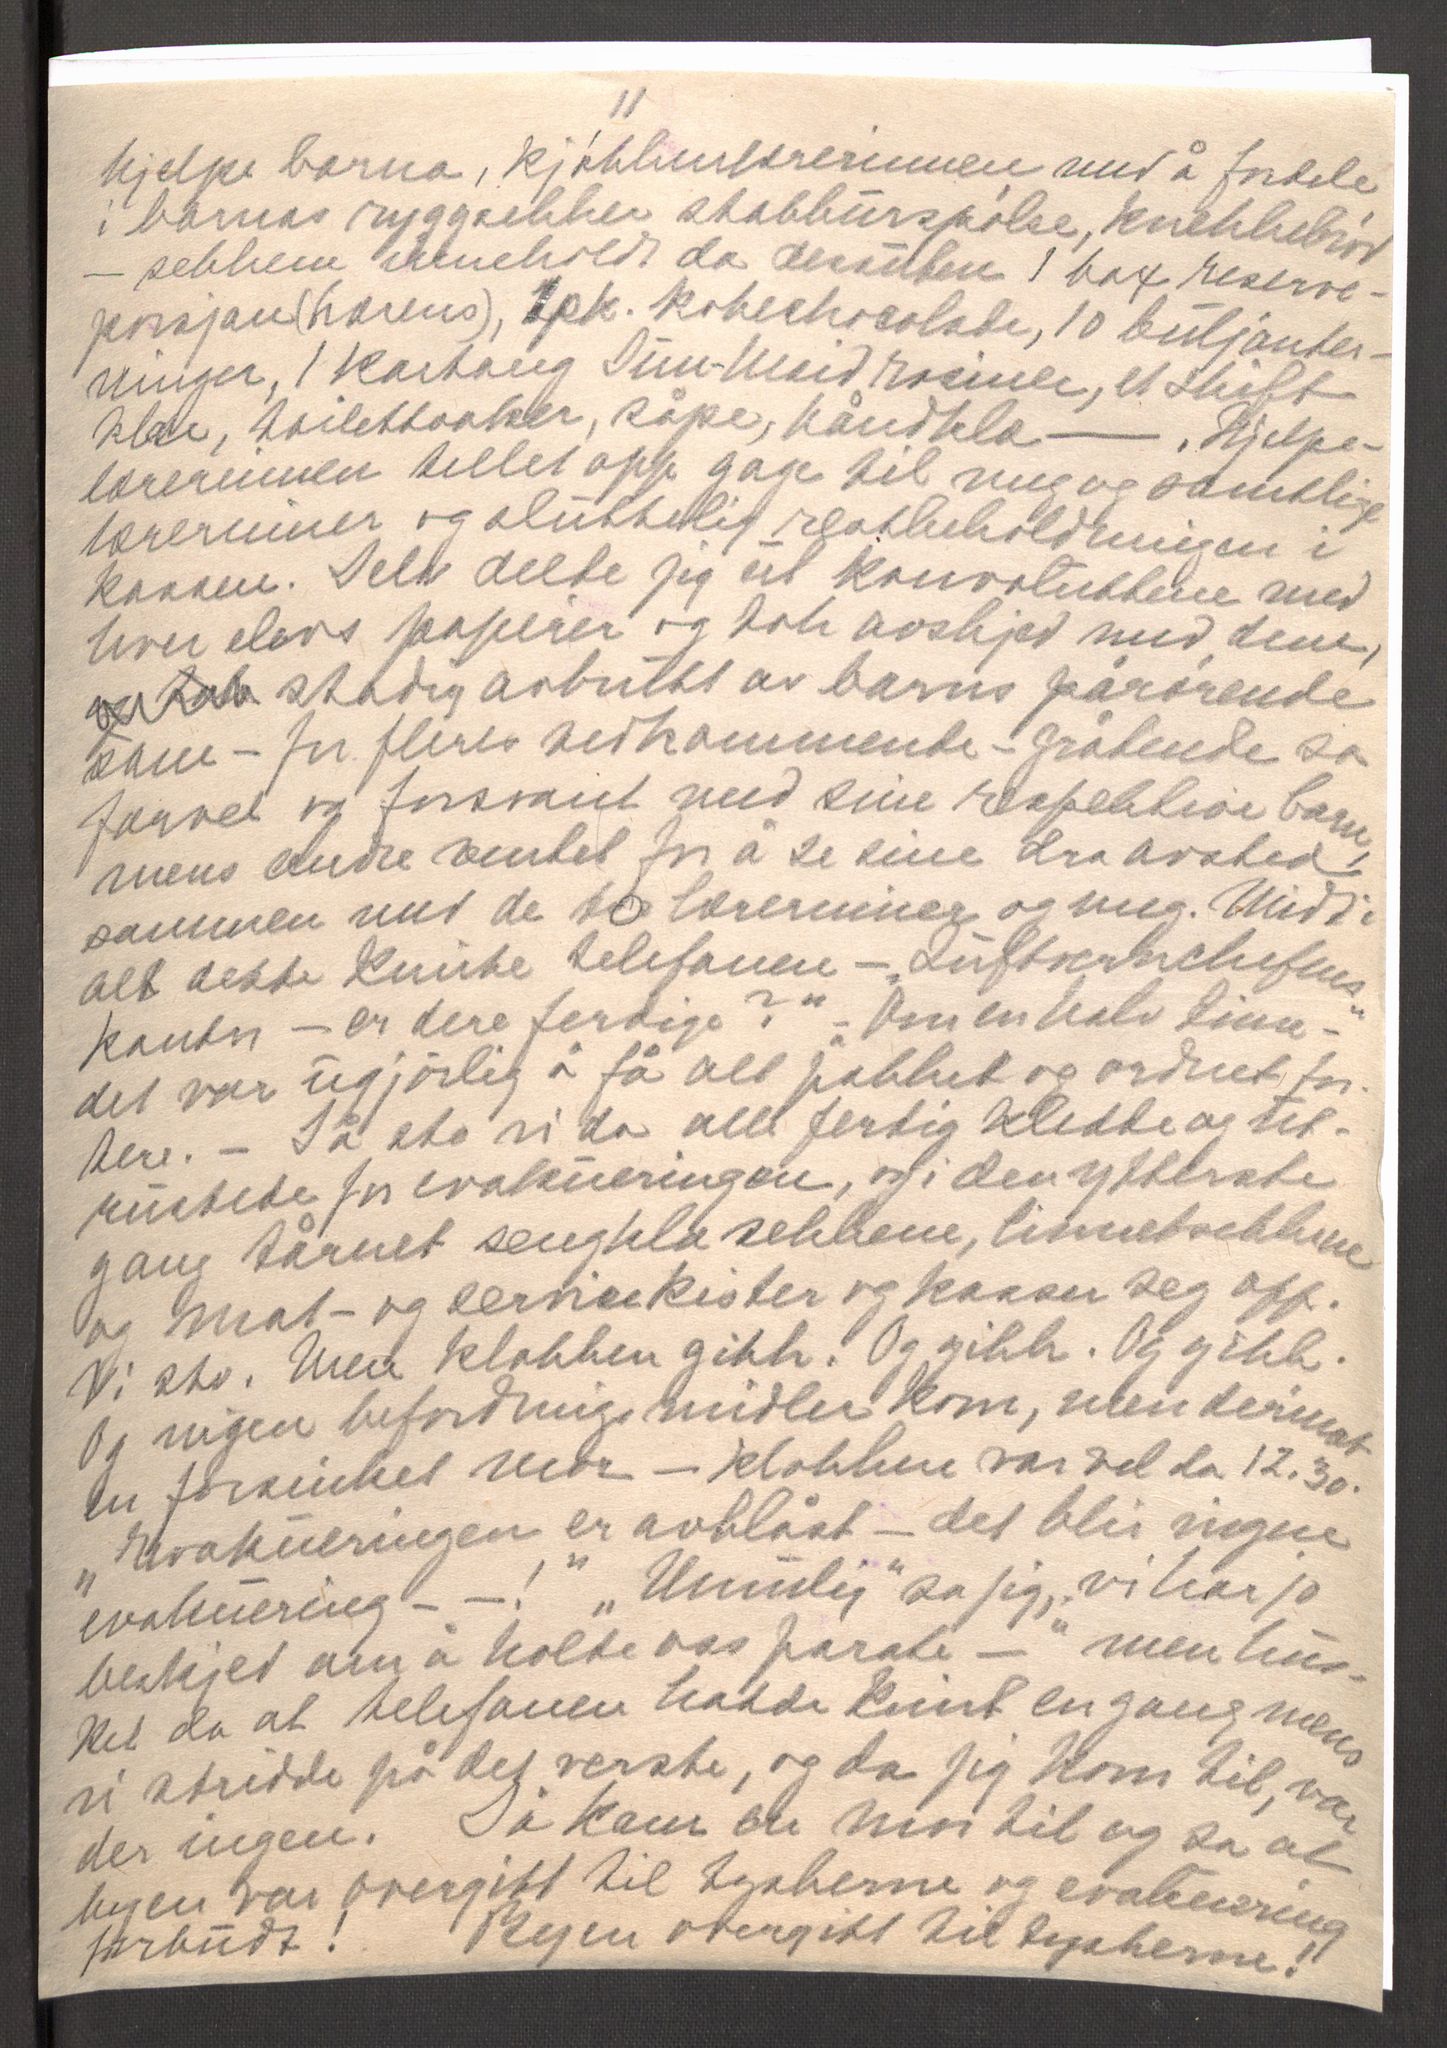 11
hjelpe barna, kjøkkenlærerinnen med å fordele
i barnas ryggsekker stabburspølse, knekkebrød
– sekkene inneholdt da desuten 1 box reserve-
porsjon (hærens), 1 pk. kokechocolade, 10 buljonter-
ninger, 1 kartong Sun-Maid rosiner, et skift
klær, toilettsaker, såpe, håndkla —— . Hjelpe-
lærerinnen tellet opp gage til meg og samtlige
lærerinner og sluttelig restbeholdningen i
kassen. Selv delte jeg ut konvoluttene med
hver elevs papirer og tok avskjed med dem,
stadig avbrutt av barns pårørende
som – for fleres vedkommende – gråtende sa
farvel og forsvant med sine respektive barn,
mens andre ventet for å se sine dra avsted
sammen med de to lærerinner og meg. Midt i
alt dette kimte telefonen – „Luftvernchefens
kontor – er dere ferdige?" „Om en halv time" –
det var ugjørlig å få alt pakket og ordnet for-
tere. – Så sto vi da alle ferdig kledte og ut-
rustete for evakueringen, og i den ytterste
gang tårnet sengkla sekkene, linnetsekkene
og mat- og servisekister og kasser seg opp.
Vi sto. Men klokken gikk. Og gikk. Og gikk.
Og ingen befordringsmidler kom, men derimot
en forsinket mor – klokken var vel da 12.30.
„Evakueringen er avblåst – det blir ingen
evakuering – – !" „Umulig" sa jeg, „vi har jo
beskjed om å holde oss parate –" men hus-
ket da at telefonen hadde kimt en gang mens
vi stridde på det verste, og da jeg kom til, var
der ingen. Så kom en mor til og sa at
byen var overgitt til tyskerne og evakuering
forbudt! Byen overgitt til tyskerne!